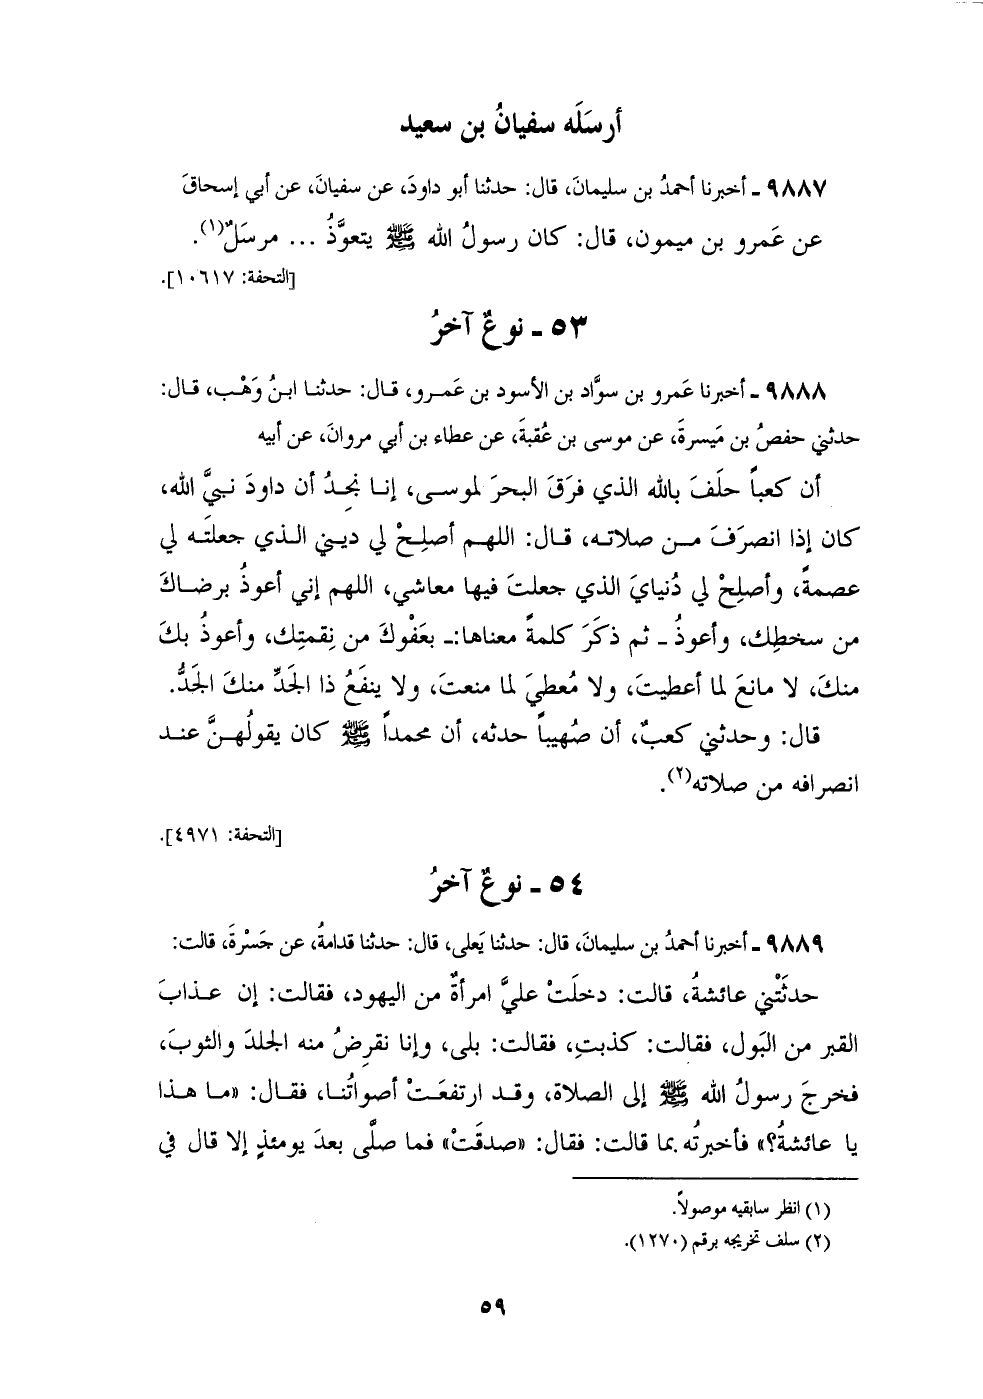 أرسَلَه سفيانُ بن سعيد
٩٨٨٧ ـ أخبرنا أحمدُ بن سليمانَ، قال: حدثنا أبو داودَ، عن سفيانَ، عن أبي إسحاقَ
عن عَمرو بن ميمون، قال: كان رسولُ الله ﷺ يتعوَّذُ ... مرسَلٌ(١).
[التحفة: ١٠٦١٧].
٥٣ ـ نوعٌ آخرُ
٩٨٨٨ ـ أخبرنا عَمرو بن سوَّاد بن الأسود بن عَمرو، قال: حدثنا ابنُ وَهْب، قال:
حدثني حفصُ بن مَيسرةَ، عن موسى بن عُقبةَ، عن عطاء بن أبي مروانَ، عن أبيه
أن كعباً حلَفَ بالله الذي فرَقَ البحرَ لموسى، إنا نجِدُ أن داودَ نبيَّ الله،
كان إذا انصرَفَ من صلاته، قال: اللهم أصلِحْ لي ديني الذي جعلتَه لي
عصمةً، وأصلِحْ لي دُنيايَ الذي جعلتَ فيها معاشي، اللهم إني أعوذُ برضاكَ
من سخطِك، وأعوذُ ـ ثم ذكَرَ كلمةً معناها:ـ بعَفْوكَ من نِقمتِك، وأعوذُ بكَ
منكَ، لا مانعَ لما أعطيتَ، ولا مُعطيَ لما منعتَ، ولا ينفَعُ ذا الجَدِّ منكَ الجَدُّ.
قال: وحدثني كعبٌ، أن صُهيباً حدثه، أن محمداً ﷺ كان يقولُهنَّ عند
انصرافه من صلاته(٢).
[التحفة: ٤٩٧١].
٥٤ ـ نوعٌ آخرُ
٩٨٨٩ ـ أخبرنا أحمدُ بن سليمانَ، قال: حدثنا يَعلى، قال: حدثنا قدامةُ، عن جَسْرةَ، قالت:
حدثَتْني عائشةُ، قالت: دخلَتْ عليَّ امرأةٌ من اليهود، فقالت: إن عذابَ
القبر من البَول، فقالت: كذبتِ، فقالت: بلى، وإنا نقرِضُ منه الجلدَ والثوبَ،
فخرجَ رسولُ الله ﷺ إلى الصلاة، وقد ارتفعَتْ أصواتُنا، فقال: «ما هذا
يا عائشةُ؟» فأخبرتُه بما قالت: فقال: «صدقَتْ» فما صلَّى بعدَ يومئذٍ إلا قال في
(١) انظر سابقيه موصولاً.
(٢) سلف تخريجه برقم (١٢٧٠).
٥٩